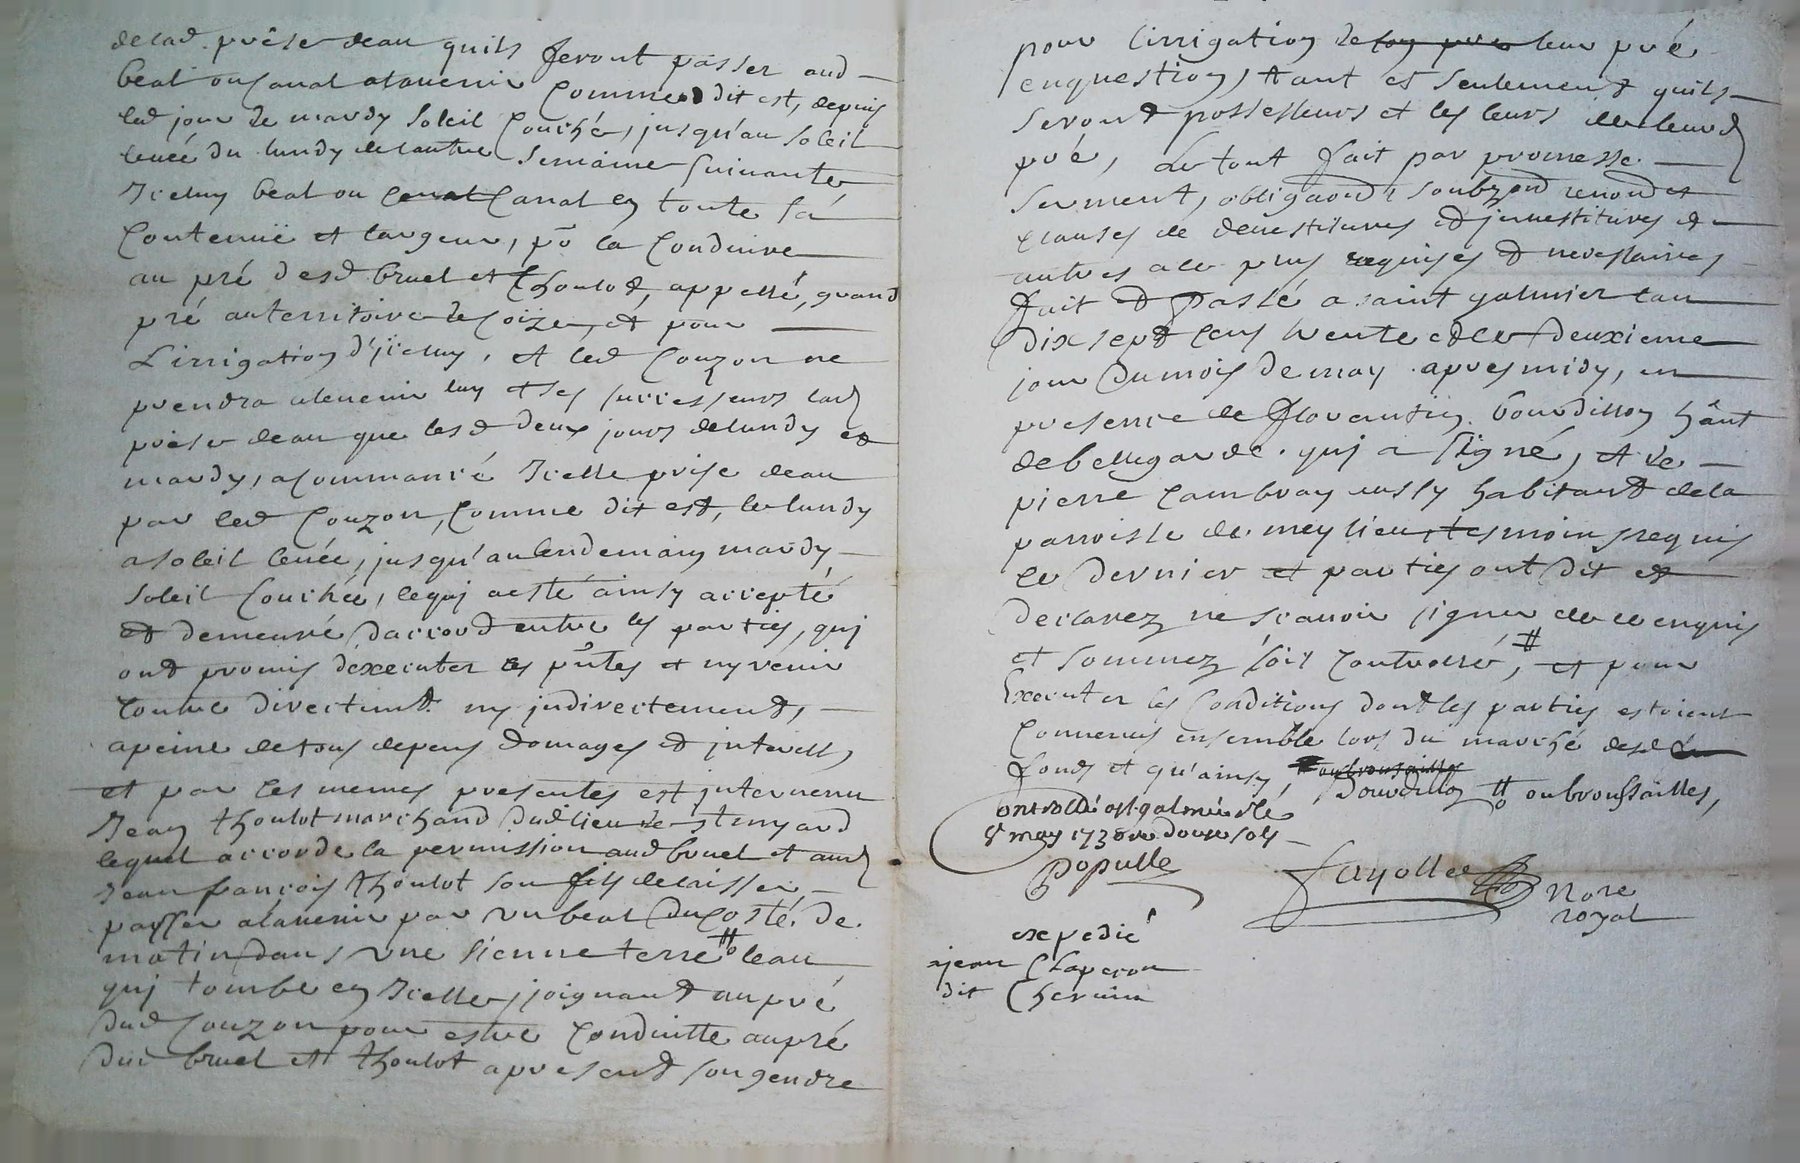 delad. prise deau quils feront passer aud
beal ou canal alavenir comme dit est, depuis
led jour de mardy soleil couché, jusqu'au soleil
levée du lundy de lautre semaine suivante
Iceluy beal ou canal canal en toute sa
contenue et largeur, po la conduire
au pré desd bruel et thoulot, appellé, grand
pré au territoire de coize, et pour
L'irrigation d'jceluy, et led couzon ne
prendra alavenir luy et ses successeurs lad
prise deau que lesd deux jours de lundy et
mardy, a commancé Icelle prise deau
par led couzon, comme dit est, le lundy
a soleil levée, jusqu'au lendemain mardy
soleil couchée, lequj a esté ainsy accepté
et demeuré daccord entre les parties, quj
ont promis dexecuter les pntes et ny venir
contre directemt. ny jndirectement,
a peine de tous depens domages et jnterests
et par les memes presentes est jntervenu
Jean thoulot marchand dud lieu de
lequel accorde la permission aud bruel et aud
Jean françois thoulot son fils de laisser
passer alavenir par un beal du costé de
matin dans une sienne terre # leau
quj tombe en Icelle, joignant au pré
dud couzon pour estre conduitte au pré
dud bruel et thoulot a present son gendre
pour l'irrigation de son pré leur pré
en question, tant et seulement quils
seront possesseurs et les leurs dud
pré, Le tout fait par promesse
serment, obligaons soubzon renon et
clauses de devestitures et jnvestitures et
autres a ce plus requises et necessaires
fait et passé a saint galmier lan
dix sept cens trente et le deuxieme
jour du mois de may apres midy, en
presence de florentin bourdillon hânt
de bellegarde quj a signé, et de
pierre cambray aussy habitant de la
parroisse de meylieu tesmoins requis
le dernier et parties ont dit et
declarez ne scavoir signer de ce enquis
et sommez soit controllé, # et pour
Executer les conditions dont les parties estoient
convenus ensemble lors du marché desd
fonds et qu'ainsy, ou broussailles
Bourdillon # ou broussailles,
controllé a st galmier le
8 may 173 douze sols
Populle
fayolle Nore
royal
expedié
a jean Chaperon
dit Chervin